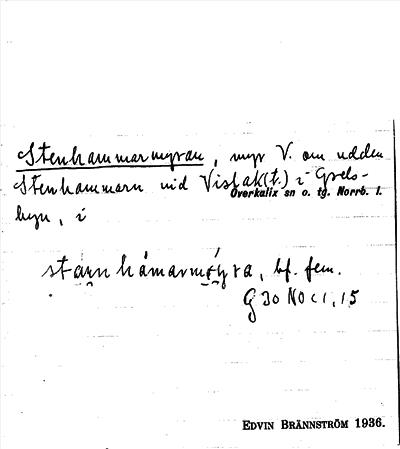 Stenhammarmyran, myr V. om udden
Stenhammarn vid Vislak(t.) i Grels-
Överkalix sn o. tg. Norrb. l.
byn, i
bf. fem.
G 30 NO c 1, 15
EDVIN BRÄNNSTRÖM 1936.